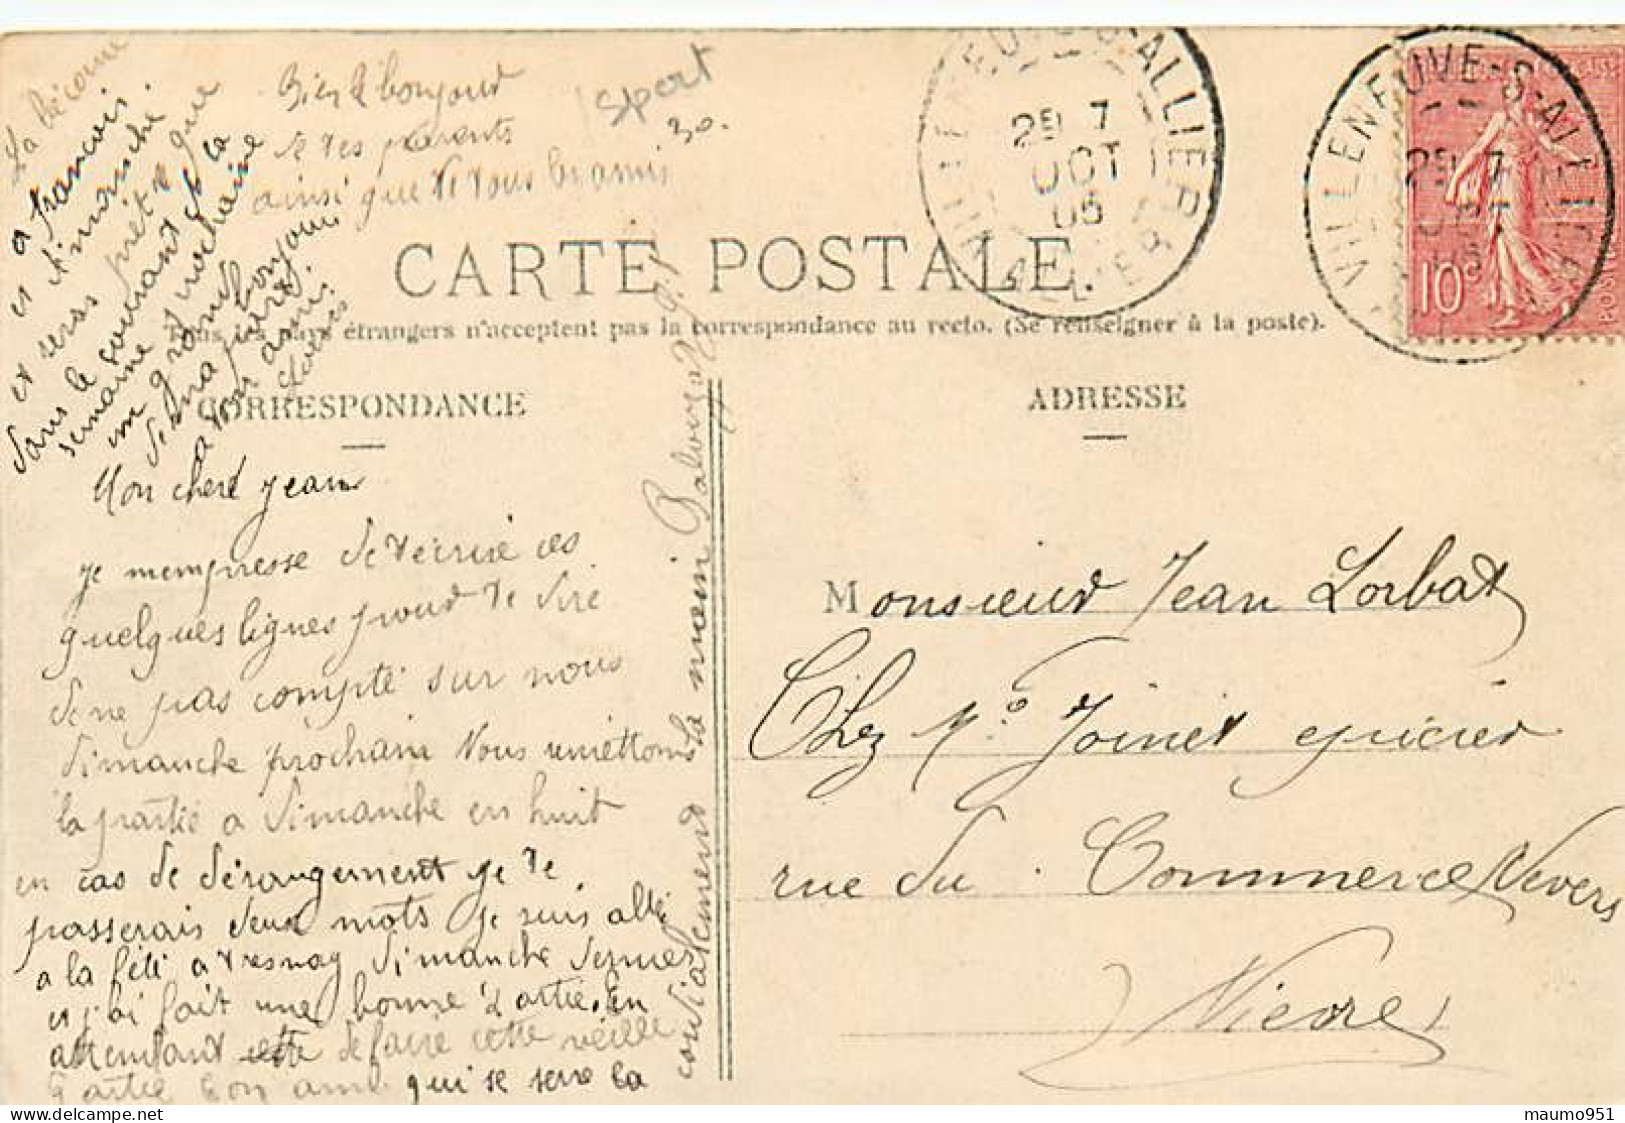 La Bécasse
a françois
et Annonsche
et seras prêt que
dans le courant de la
semaine prochaine
un grand bonjour
de ma part
a ton ami
Louis
Bien le bonjour
de tes parents
ainsi que de tous les amis
sport
30.
VILLENEUVE-S-ALLIER
29 7
OCT
05
VILLENEUVE-S-ALLIER
29 7
OCT
05
10c
CARTE POSTALE.
Tous les pays étrangers n'acceptent pas la correspondance au recto. (Se renseigner à la poste).
CORRESPONDANCE
ADRESSE
Mon cher Jean
Je m'empresse de t'ecrire ces
quelques lignes pour te dire
de ne pas compté sur nous
dimanche prochain Nous remettons
la partie a dimanche en huit
en cas de dérangement je te
passerais deux mots je suis allé
a la fête a tresnay dimanche dernier
et j'ai fait une bonne partie. En
attendant de faire cette vieille
partie ton ami qui te serre la
la main
cordialement
Monsieur Jean Lorbat
Chez Mr Joinet epicier
rue du Commerce Nevers
Nièvre
maumo951